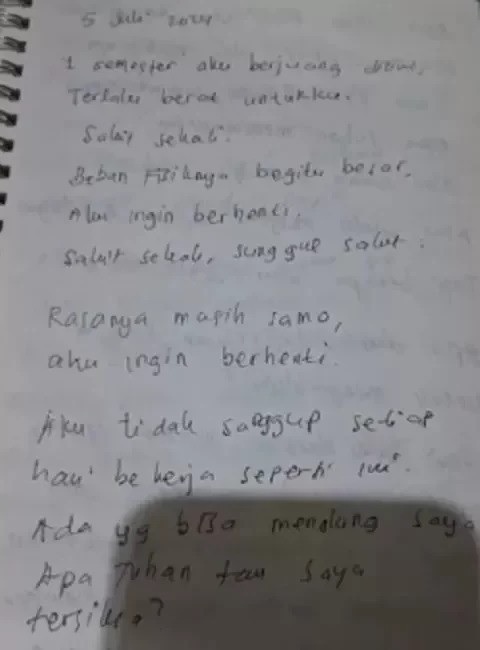 5 Juli 2024
1 semester aku berjuang disini,
Terlalu berat untukku.
Sakit sekali.
Beban Fisiknya begitu besar,
Aku ingin berhenti.
Sakit sekali, sungguh sakit.
Rasanya masih sama,
aku ingin berhenti.
Aku tidak sanggup setiap
hari bekerja seperti ini.
Ada yg bisa menolong saya
Apa Tuhan tau saya
tersiksa?